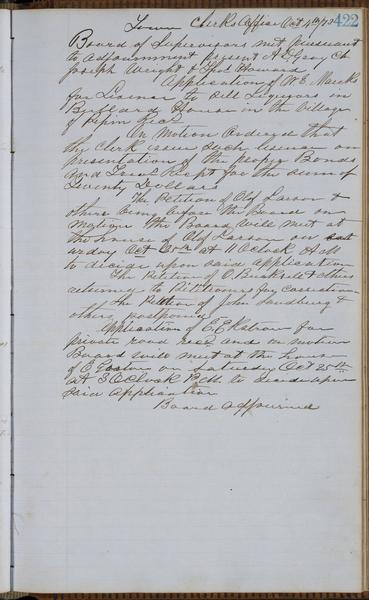 422
Town Clerks Office Oct 4th
Board of Supervisors met pursuant
to adjournment present A. Gray Ch
Joseph Wright & Thos Howard
Application of W. E. Marks
for License to sell Liquors in
House in the Village
of Pepin Recd
On Motion Ordered that
the Clerk issue such license on
presentation of the proper Bonds
and Treas Recpt for the sum of
Twenty Dollars
The Petition of Olof Larson &
others being before the Board on
motion the Board will meet at
the house of Olof Larson on Sat
urday Oct 25th at 10 Oclock A.M.
to decide upon said application
The Petition of O. & others
returned to Petitioners for correction
The Petition of John Sandburg &
others postponed
Application of E. for
private road recd and on motion
Board will meet at the house
of E on Saturday Oct 25th
at 3 Oclock P.M. to decide upon
said application
Board adjourned